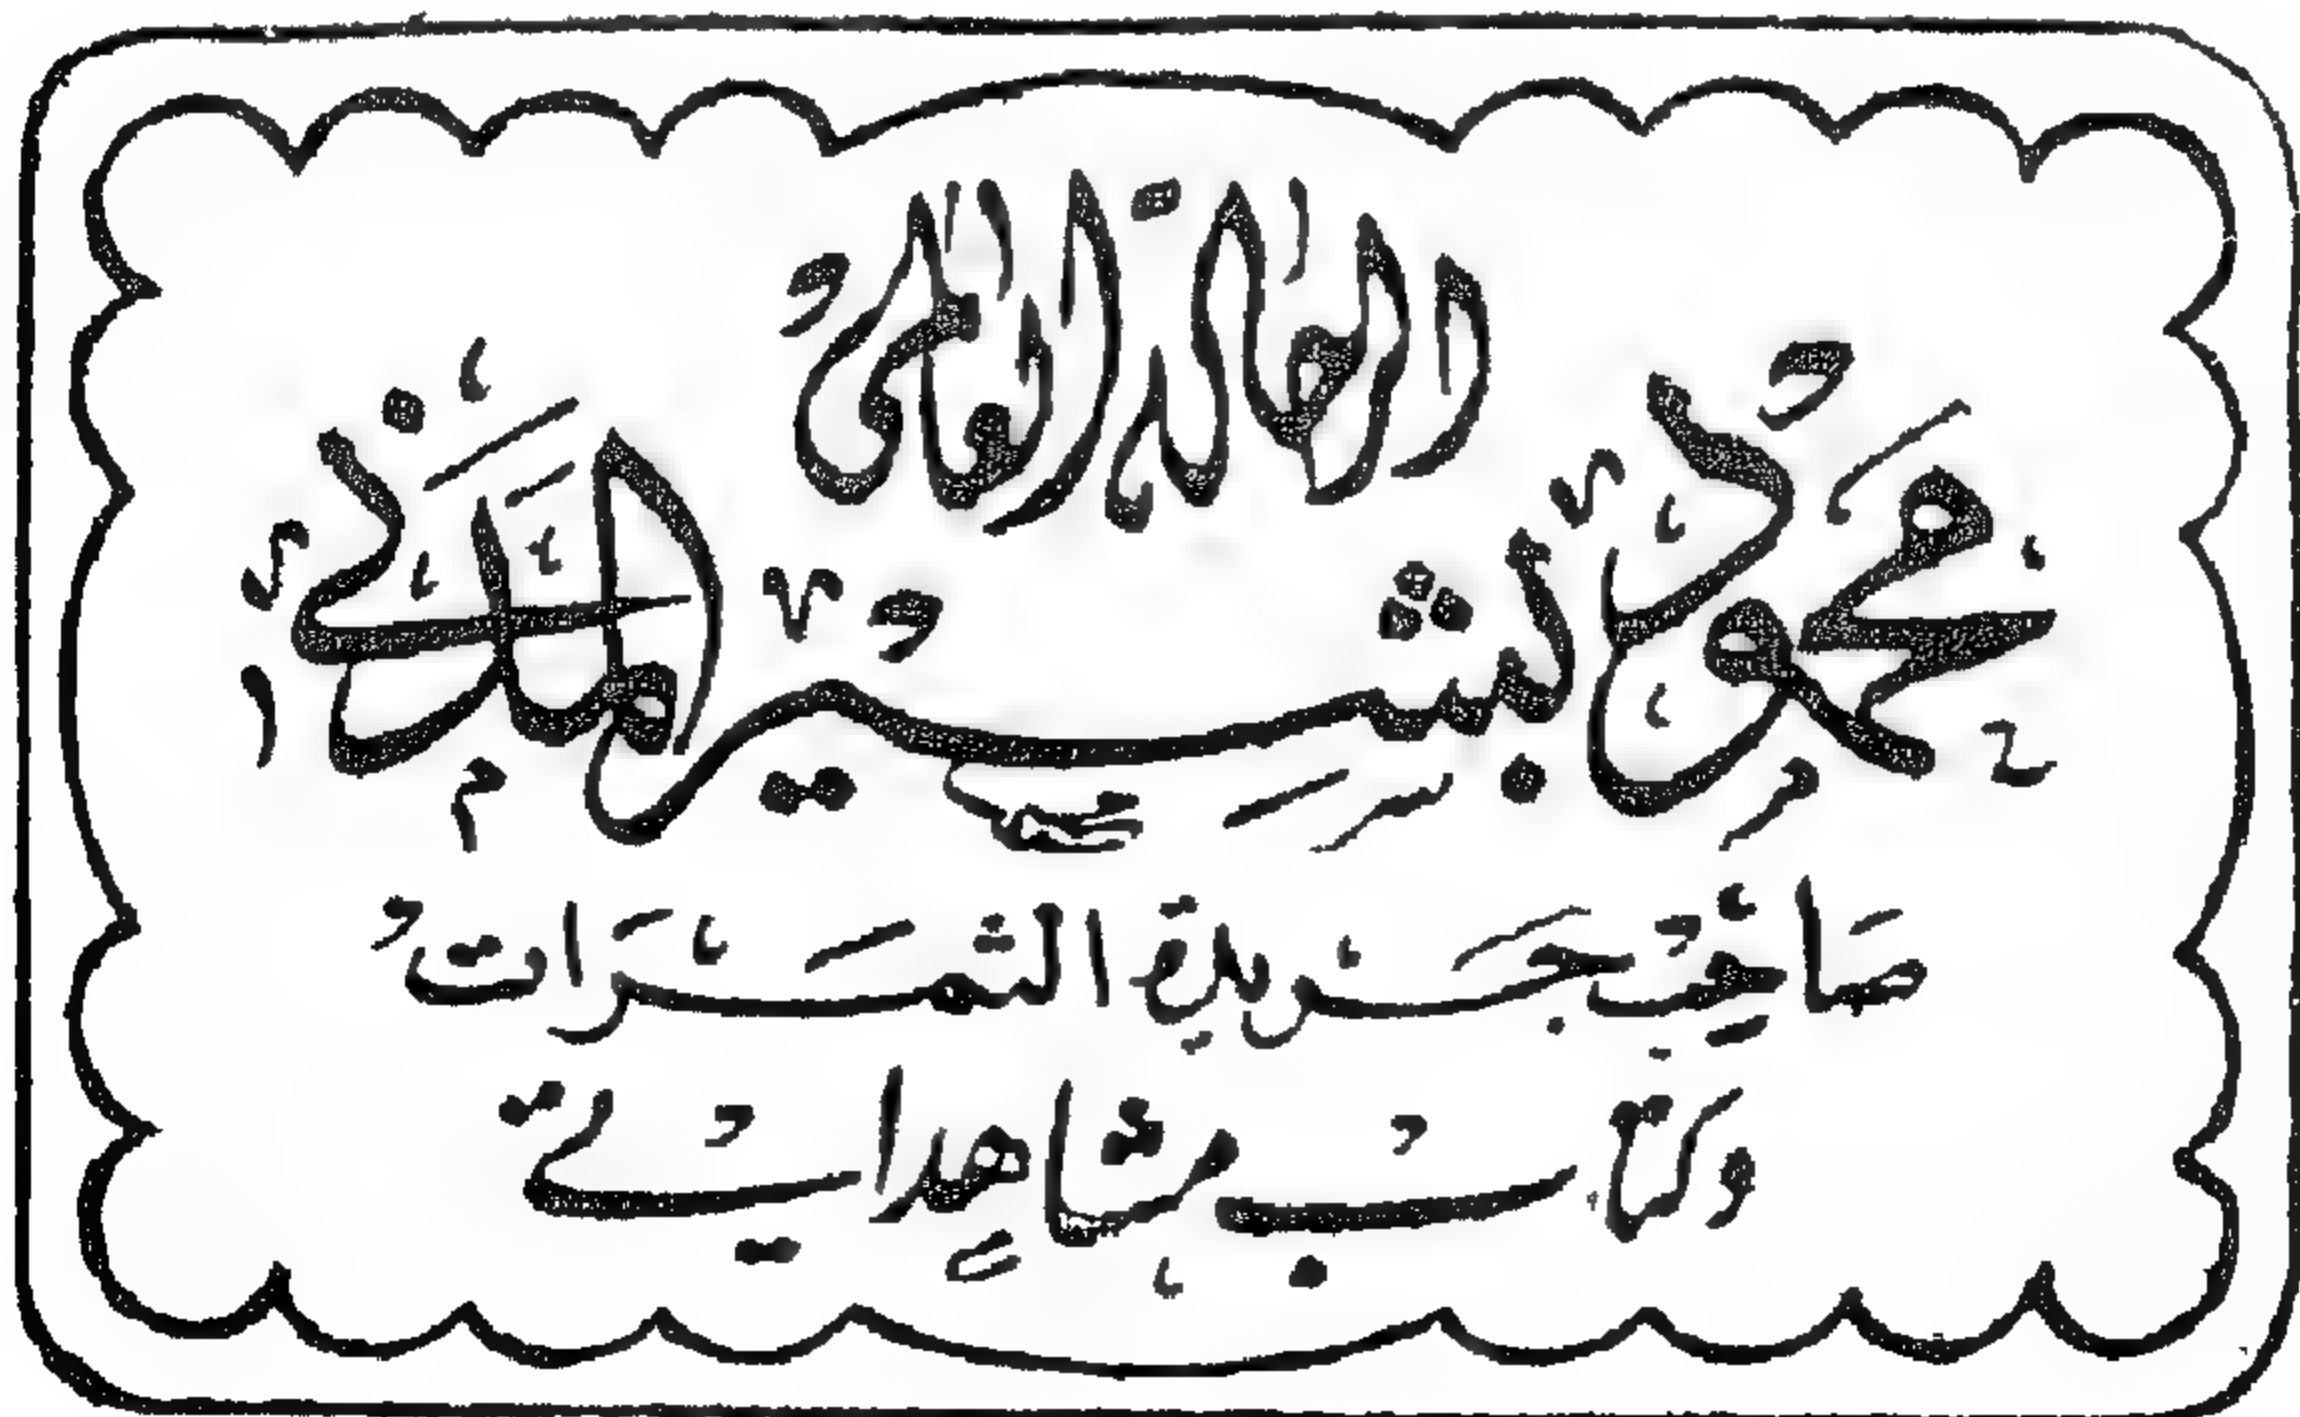 الرحالة العالمي
محمود البشير المدني
صَاحِبُ جَرِيدَة الثَّمَرَاتُ
وكتابُ مشاهِداتي